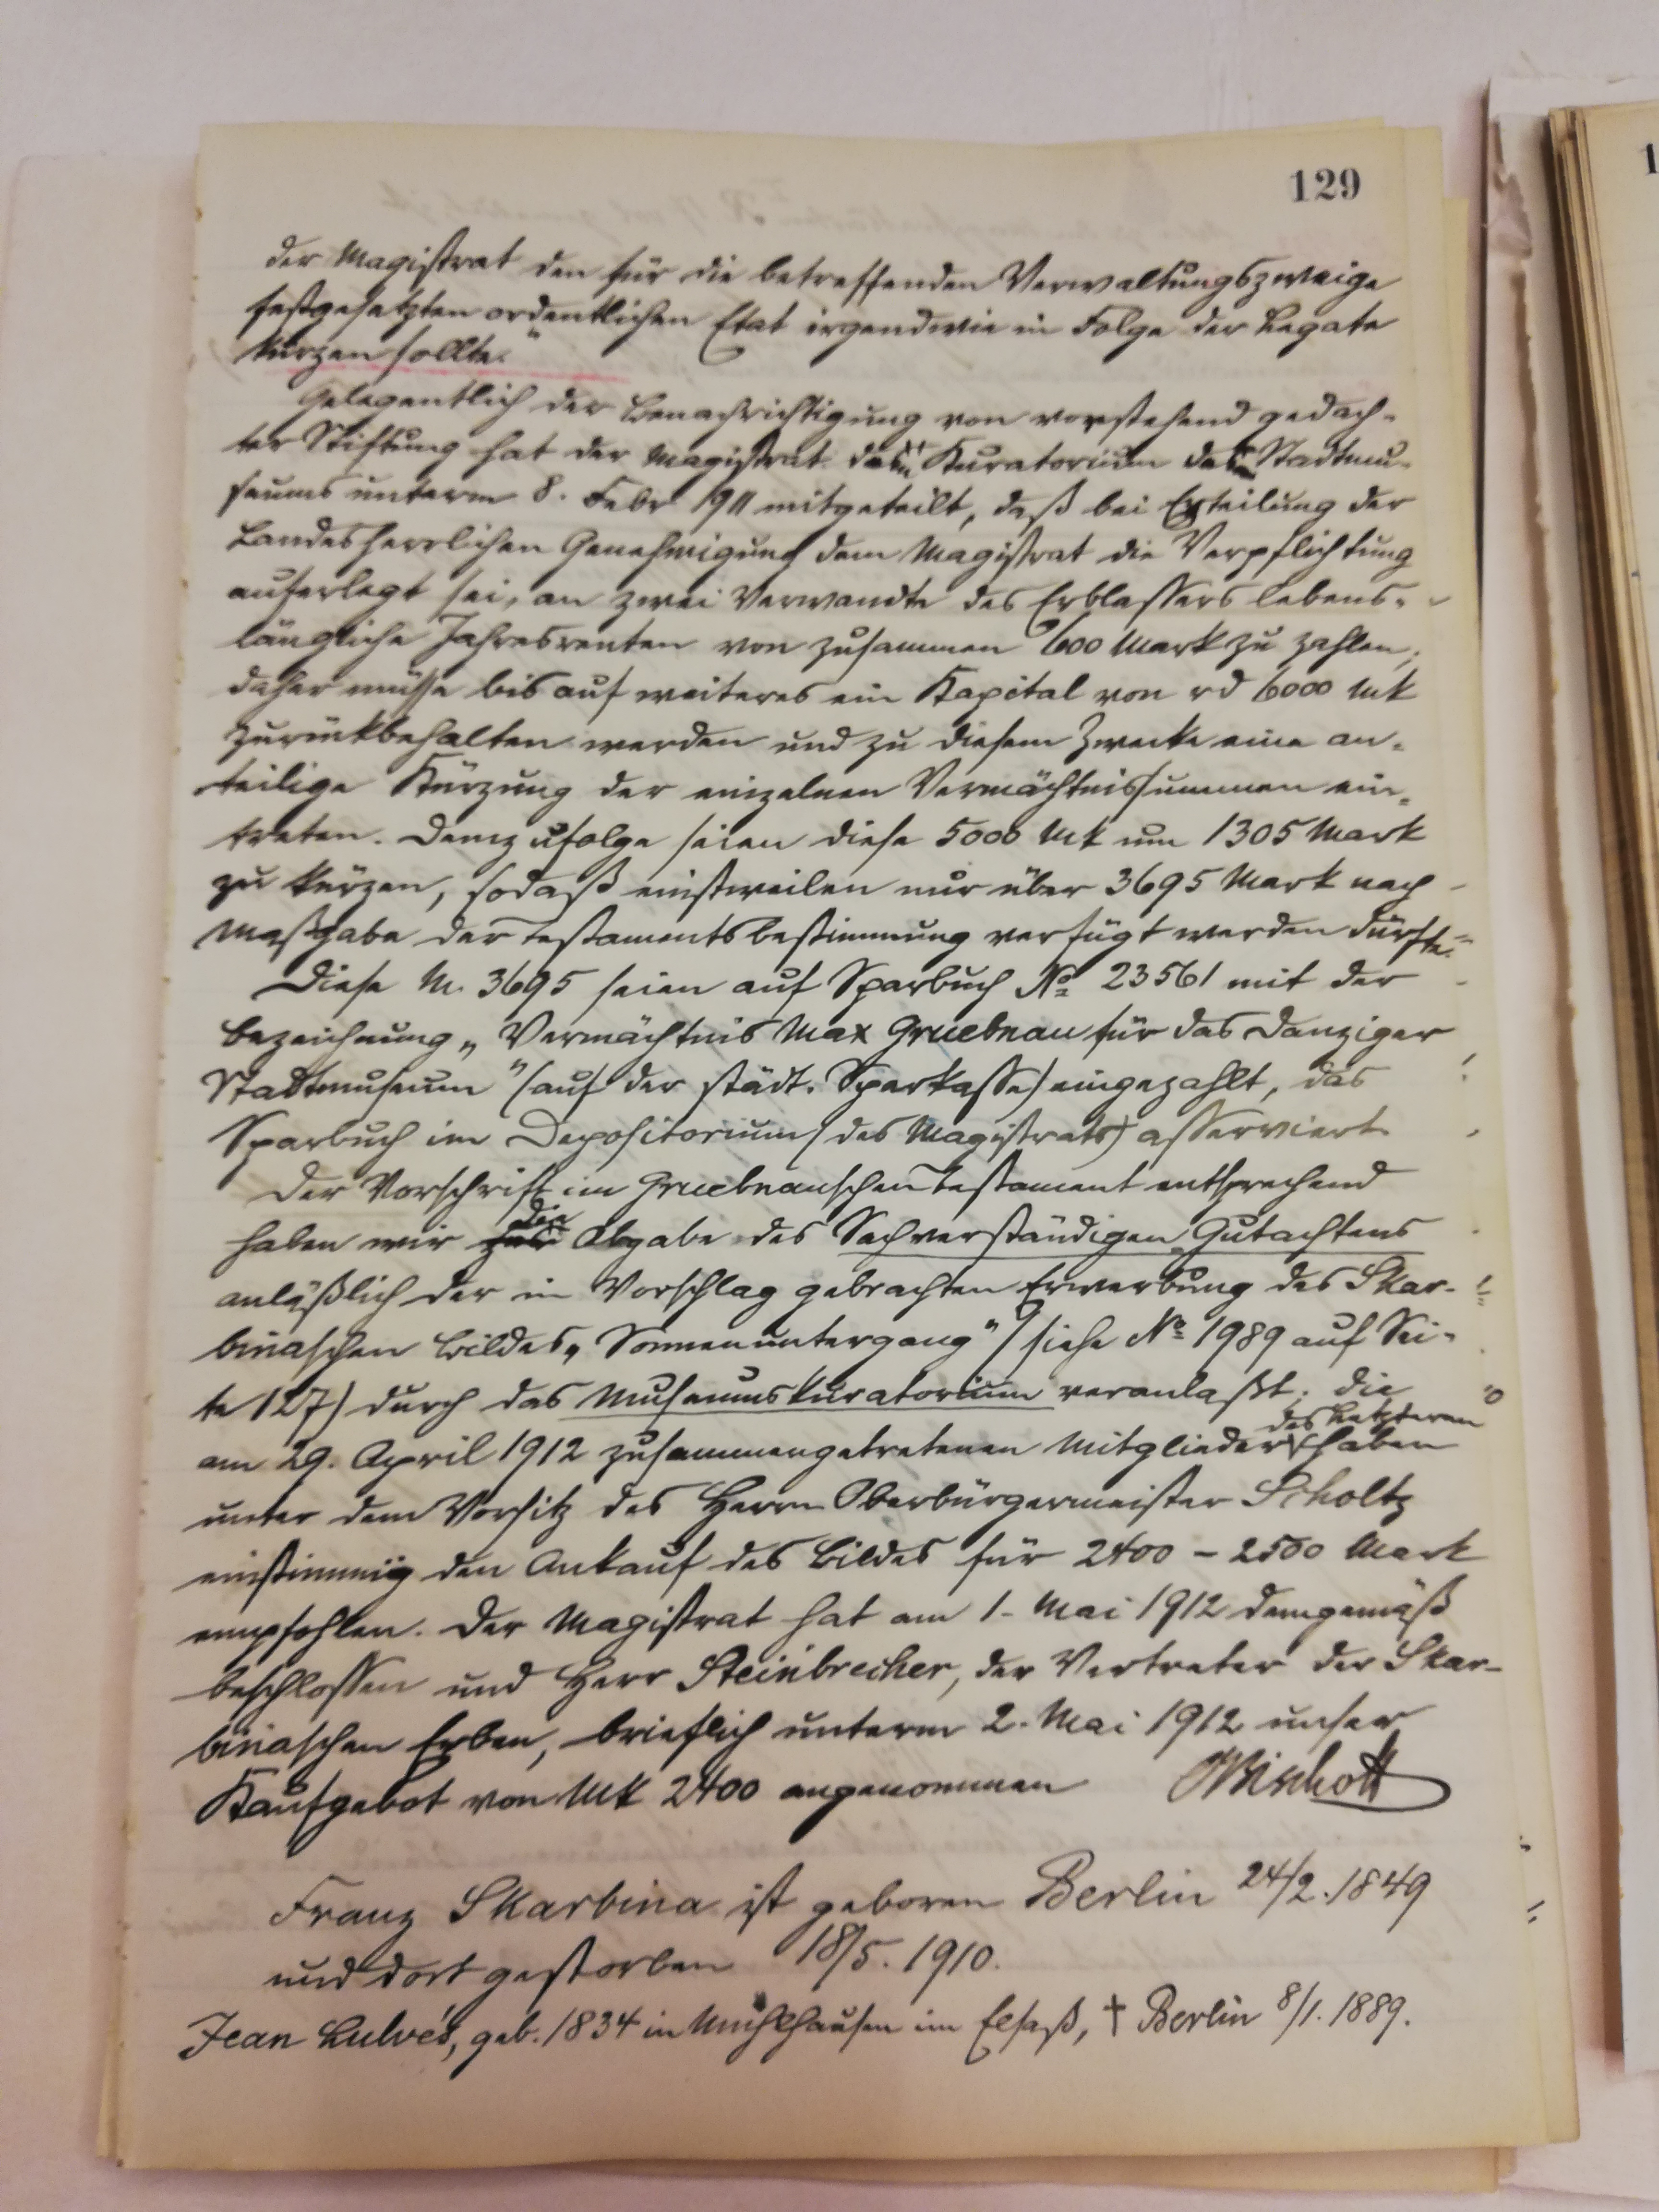 129
der Magistrat den für die betreffenden Verwaltungszweige
festgesetzten ordentlichen Etat irgendwie in Folge der Legate
kürzen sollte."
Gelegentlich der Benachrichtigung von vorstehend gedach-
ter Stiftung hat der Magistrat das Kuratorium des Stadtmu-
seums unterm 8. Febr 1911 mitgeteilt, daß bei Erteilung der
Landesherrlichen Genehmigung dem Magistrat die Verpflichtung
auferlegt sei, an zwei Verwandte des Erblassers lebens-
längliche Jahresrenten von zusammen 600 Mark zu zahlen;
daher müsse bis auf weiteres ein Kapital von rd 6000 Mk
zurückbehalten werden und zu diesem Zwecke eine an-
teilige Kürzung der einzelnen Vermächtnissummen ein-
treten. Demzufolge seien diese 5000 Mk um 1305 Mark
zu kürzen, sodaß einstweilen nur über 3695 Mark nach
Maßgabe der Testamentsbestimmung verfügt werden dürfte.
Diese M. 3695 seien auf Sparbuch No 23561 mit der
Bezeichnung „Vermächtnis Max Gruebnau für das Danziger
Stadtmuseum" (auf der städt. Sparkasse) eingezahlt, das
Sparbuch im Depositorium (des Magistrats) asserviert
Der Vorschrift im Gruebnauschen Testament entsprechend
haben wir die Abgabe des Sachverständigen-Gutachtens
anläßlich der in Vorschlag gebrachten Erwerbung des Skar-
binaschen Bildes „Sonnenuntergang" (siehe No 1989 auf Sei-
te 127) durch das Museumskuratorium veranlaßt; die
am 29. April 1912 zusammengetretenen Mitglieder des Letzteren haben
unter dem Vorsitz des Herrn Oberbürgermeister Scholtz
einstimmig den Ankauf des Bildes für 2400 – 2500 Mark
empfohlen. Der Magistrat hat am 1. Mai 1912 demgemäß
beschlossen und Herr Steinbrecher, der Vertreter der Skar-
binaschen Erben, brieflich unterm 2. Mai 1912 unser
Kaufgebot von Mk 2400 angenommen
Franz Skarbina ist geboren Berlin 24/2. 1849
und dort gestorben 18/5. 1910.
Jean Lulvès, geb. 1834 in Mühlhausen im Elsaß, † Berlin 8/1. 1889.